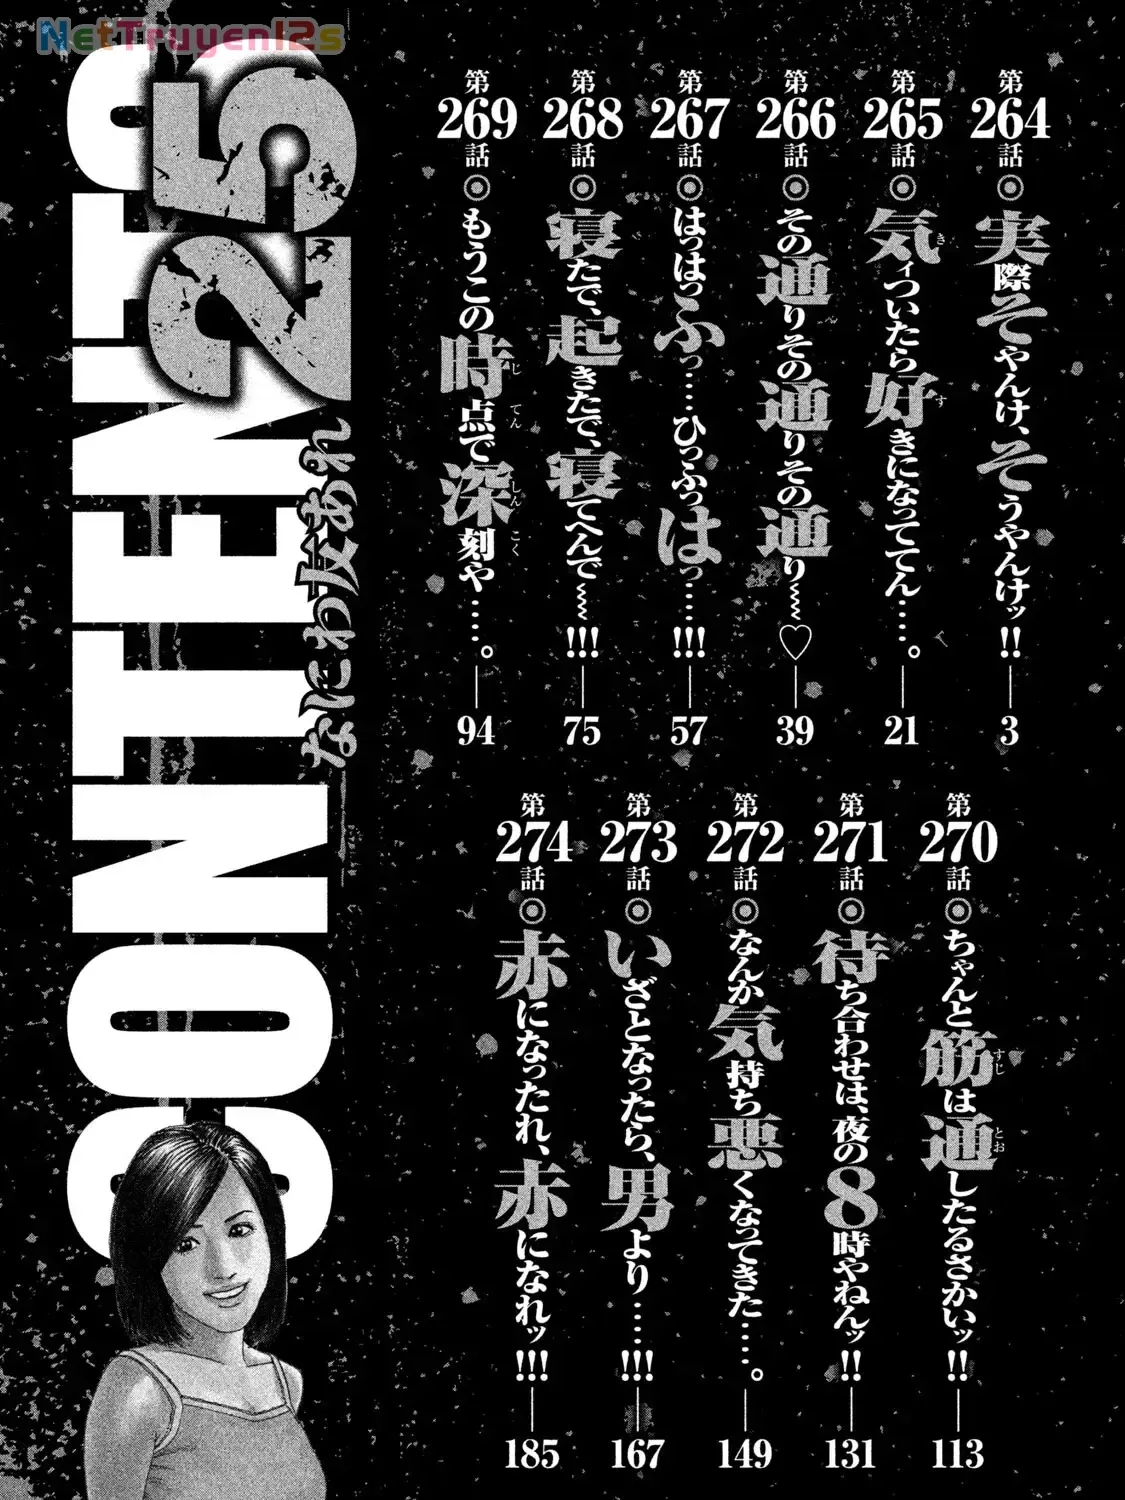 NetTruyen12s
CONTENTS
25
なにわ友あれ
第264話◎実際そやんけ、そうやんけッ!!―3
第265話◎気ィついたら好きになっててん……。―21
第266話◎その通りその通りその通り〜〜♡―39
第267話◎はっはっふっ…ひっふっはっ…!!!―57
第268話◎寝たで、起きたで、寝てへんで〜〜!!!―75
第269話◎もうこの時点で深刻や……。―94
第270話◎ちゃんと筋は通したるさかいッ!!―113
第271話◎待ち合わせは、夜の8時やねんッ!!―131
第272話◎なんか気持ち悪くなってきた……。―149
第273話◎いざとなったら、男より……!!!―167
第274話◎赤になったれ、赤になれッ!!!―185